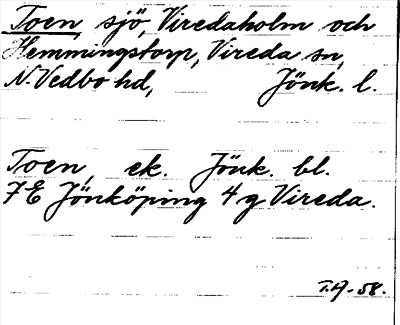 Toen, sjö, Viredaholm och
Hemmingstorp, Vireda sn,
N. Vedbo hd, Jönk. l.
Toen, ek. Jönk. bl.
7E Jönköping 4g Vireda.
T.A. 58.